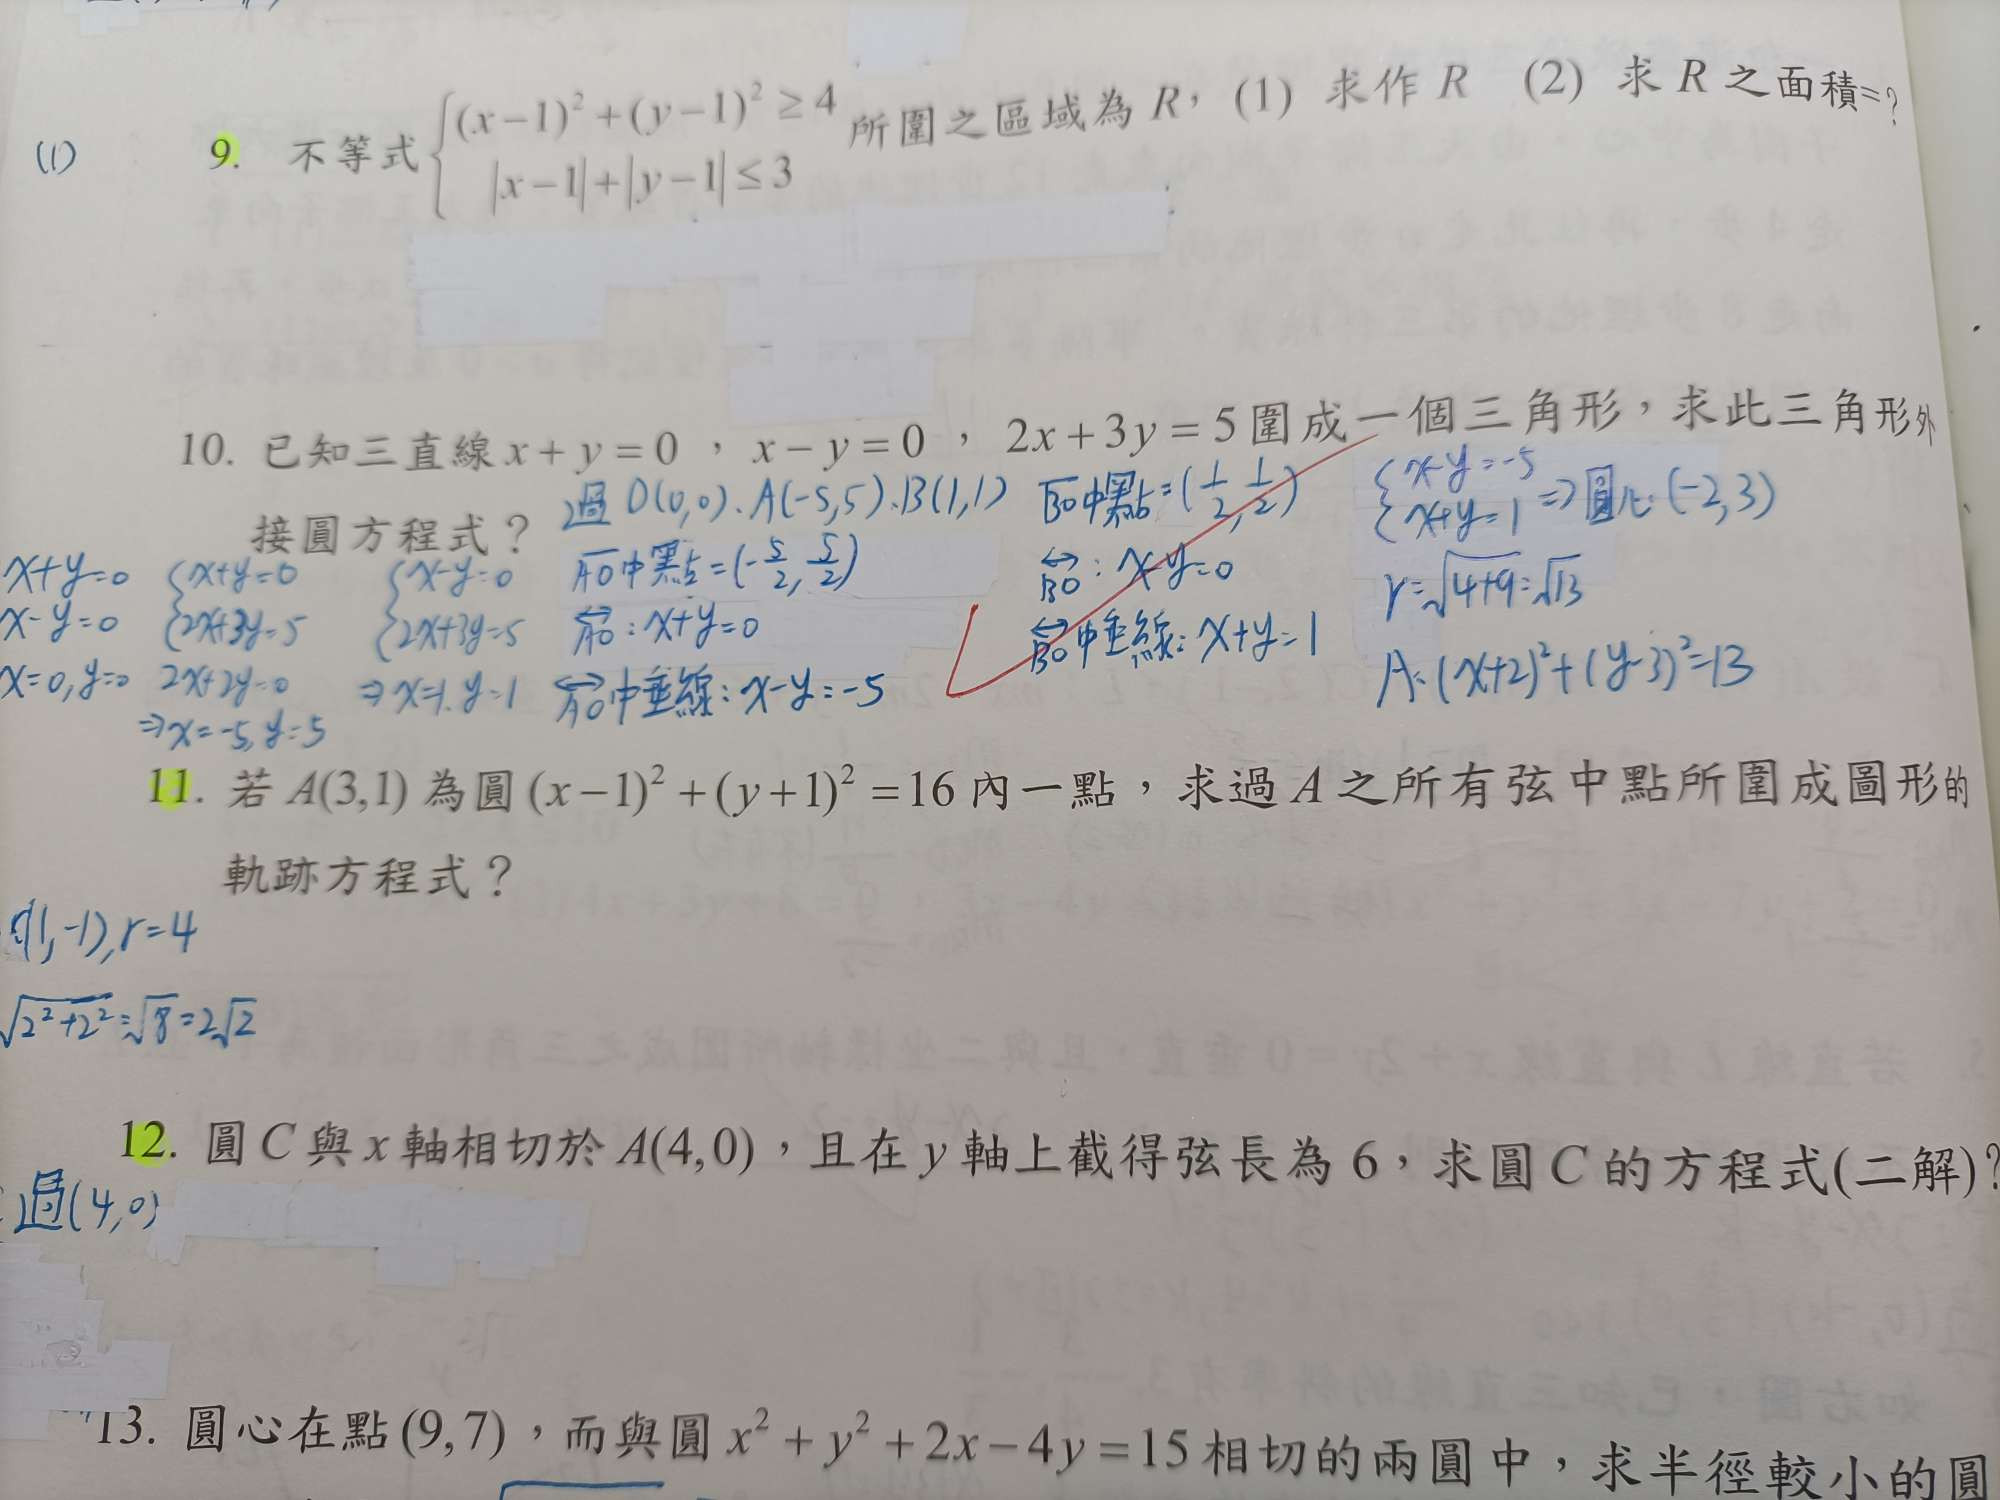 (1)
9. 不等式 { (x-1)² + (y-1)² ≥ 4
|x-1| + |y-1| ≤ 3 所圍之區域為 R，(1) 求作 R (2) 求 R 之面積=?
10. 已知三直線 x + y = 0 ， x - y = 0 ， 2x + 3y = 5 圍成一個三角形，求此三角形外
接圓方程式？
x+y=0
x-y=0
x=0, y=0
{ x+y=0
2x+3y=5
2x+2y=0
⇒ x=-5, y=5
{ x-y=0
2x+3y=5
⇒ x=1, y=1
過 O(0,0)、A(-5,5)、B(1,1)
AO中點=(-5/2, 5/2)
AO : x+y=0
AO中垂線: x-y=-5
BO中點=(1/2, 1/2)
BO : x-y=0
BO中垂線: x+y=1
{ x-y=-5
x+y=1 ⇒ 圓心: (-2,3)
r=√4+9=√13
A: (x+2)²+(y-3)²=13
11. 若 A(3,1) 為圓 (x-1)² + (y+1)² = 16 內一點，求過 A 之所有弦中點所圍成圖形的
軌跡方程式？
(1,-1), r=4
√2²+2²=√8=2√2
12. 圓 C 與 x 軸相切於 A(4,0)，且在 y 軸上截得弦長為 6，求圓 C 的方程式(二解)?
過(4,0)
13. 圓心在點 (9,7)，而與圓 x² + y² + 2x - 4y = 15 相切的兩圓中，求半徑較小的圓